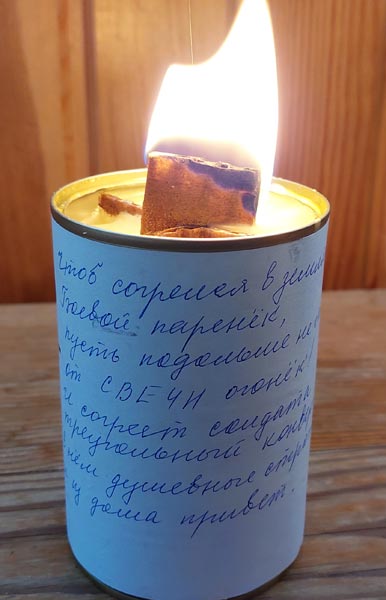 Чтоб согрелся в
Боевой паренёк,
пусть подольше не
от СВЕЧИ огонёк!
И согреет солдата
треугольный
душевные
из дома привет.